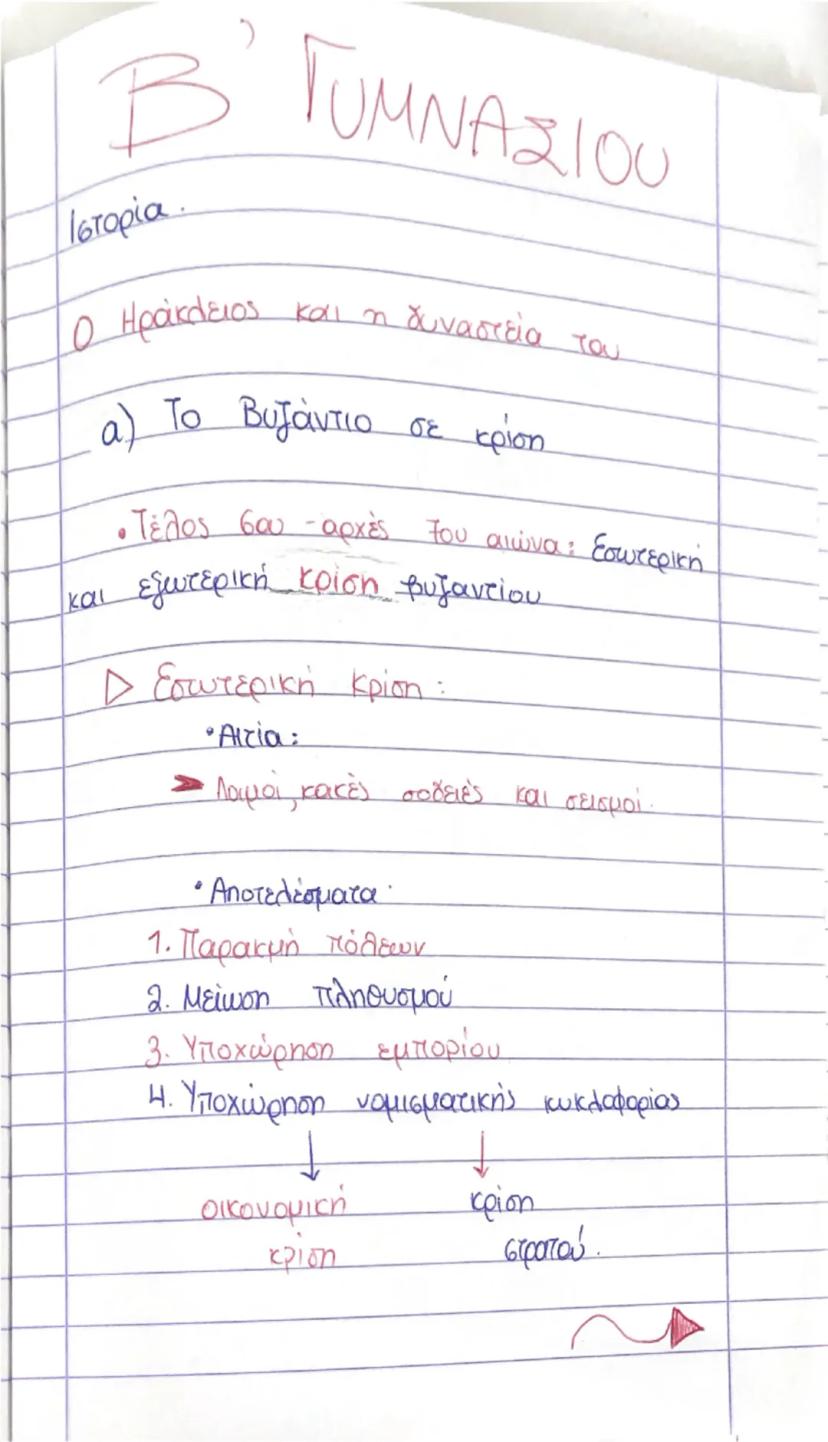 Β' ΓΥΜΝΑΣΙΟΥ
Ιστορία.
Ο Ηράκλειος και η δυναστεία του
α) Το Βυζάντιο σε κρίση
• Τέλος 6ου - αρχές 7ου αιώνα: Εσωτερική
και εξωτερική κρίση βυζαντίου
▷ Εσωτερική κρίση:
• Αιτία:
➤ Λοιμοί, κακές σοδειές και σεισμοί.
• Αποτελέσματα
1. Παρακμή πόλεων
2. Μείωση πληθυσμού
3. Υποχώρηση εμπορίου
4. Υποχώρηση νομισματικής κυκλαφορίας
↓ ↓
οικονομική κρίση
κρίση στρατού.